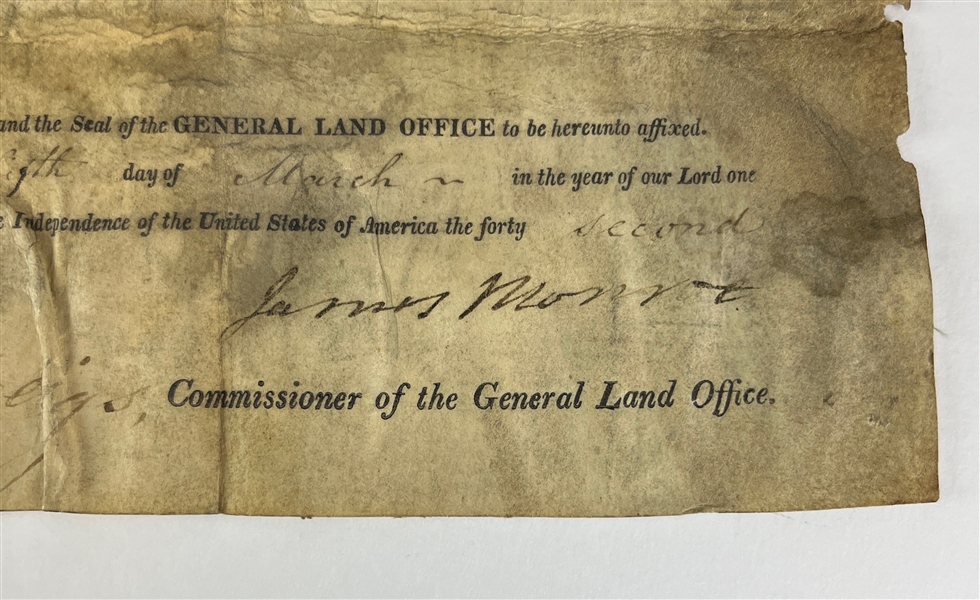 and the Seal of the GENERAL LAND OFFICE to be hereunto affixed.
day of March in the year of our Lord one
Independence of the United States of America the forty second
James Monroe
eigs, Commissioner of the General Land Office.